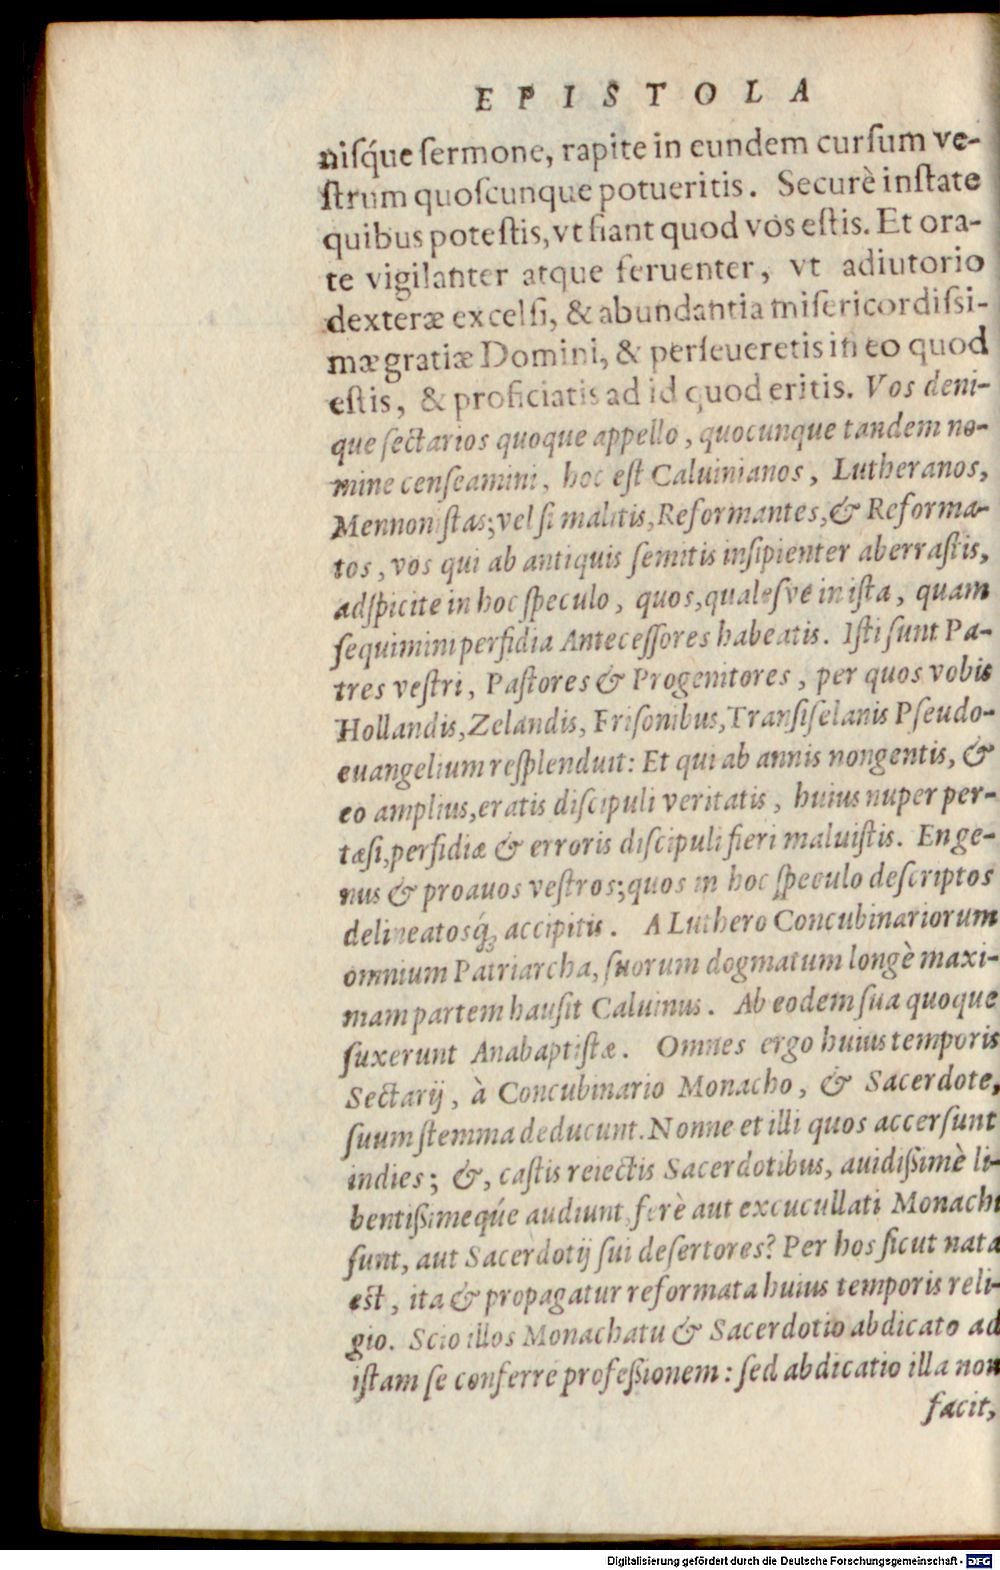 EPISTOLA
nisq́ue ſermone, rapite in eundem curſum ve-
ſtrum quoſcunque potueritis. Securè inſtate
quibus poteſtis, vt fiant quod vos eſtis. Et ora-
te vigilanter atque feruenter, vt adiutorio
dexteræ excelſi, & abundantia miſericordiſſi-
mæ gratiæ Domini, & perſeueretis in eo quod
eſtis, & proficiatis ad id quod eritis. Vos deni-
que ſectarios quoque appello, quocunque tandem no-
mine cenſeamini, hoc eſt Caluinianos, Lutheranos,
Mennoniſtas; vel ſi malitis, Reformantes, & Reforma-
tos, vos qui ab antiquis ſemitis inſipienter aberraſtis,
adſpicite in hoc ſpeculo, quos, qualeſve in iſta, quam
ſequimini perfidia Anteceſſores habeatis. Iſti ſunt Pa-
tres veſtri, Paſtores & Progenitores, per quos vobis
Hollandis, Zelandis, Friſonibus, Tranſiſelanis Pſeudo-
euangelium reſplenduit: Et qui ab annis nongentis, &
eo amplius, eratis diſcipuli veritatis, huius nuper per-
tæſi, perfidiæ & erroris diſcipuli fieri maluiſtis. En ge-
nus & proauos veſtros; quos in hoc ſpeculo deſcriptos
delineatosq́ꝫ accipitis. A Luthero Concubinariorum
omnium Patriarcha, ſuorum dogmatum longè maxi-
mam partem hauſit Caluinus. Ab eodem ſua quoque
ſuxerunt Anabaptiſtæ. Omnes ergo huius temporis
Sectarij, à Concubinario Monacho, & Sacerdote,
ſuum ſtemma deducunt. Nonne et illi quos accerſunt
indies; &, caſtis reiectis Sacerdotibus, auidißimè li-
bentißimeq́ue audiunt, ferè aut excucullati Monachi
ſunt, aut Sacerdotij ſui deſertores? Per hos ſicut nata
eſt, ita & propagatur reformata huius temporis reli-
gio. Scio illos Monachatu & Sacerdotio abdicato ad
iſtam ſe conferre profeßionem: ſed abdicatio illa non
facit,
Digitalisierung gefördert durch die Deutsche Forschungsgemeinschaft - DFG